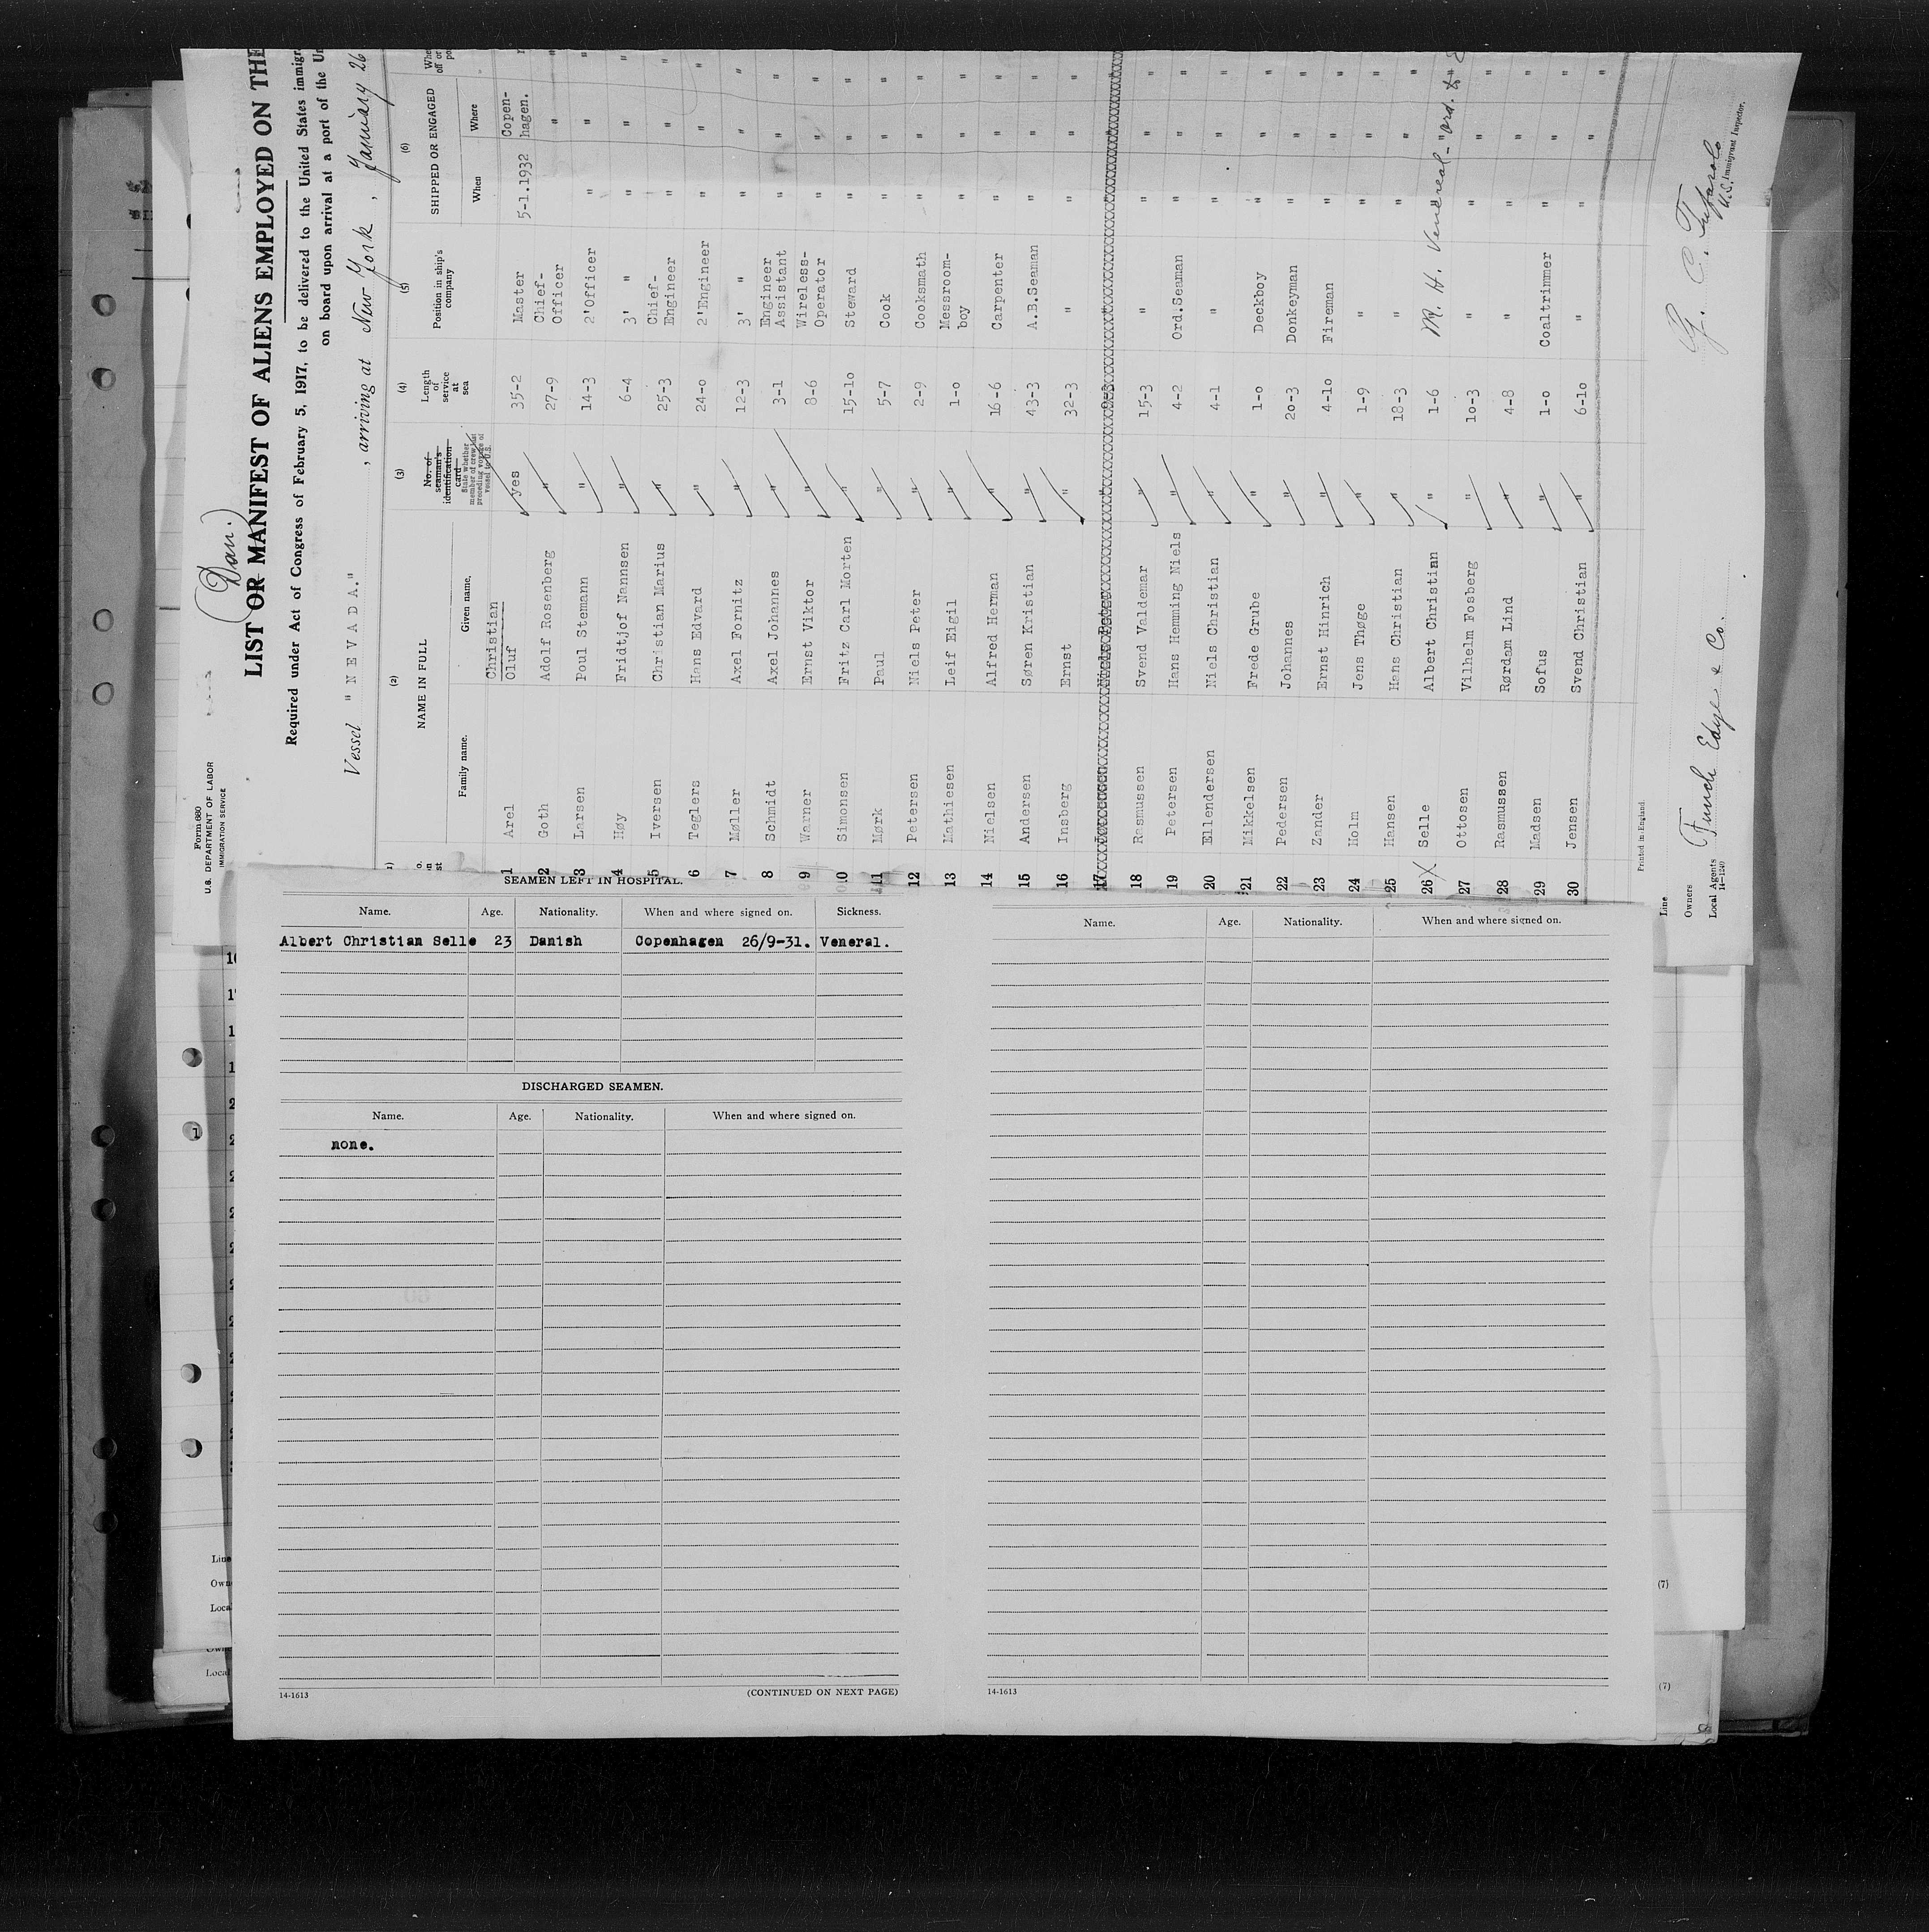 (Dan.)
Form 680
U.S. DEPARTMENT OF LABOR
IMMIGRATION SERVICE
LIST OR MANIFEST OF ALIENS EMPLOYED ON THE
Required under Act of Congress of February 5, 1917, to be delivered to the United States immigr
on board upon arrival at a port of the Un
Vessel "NEVADA." , arriving at New York , January 26
(2) (3) (4) (5) (6)
NAME IN FULL
Family name. Given name,
No. of seaman's identification card
State whether member of crew last preceding voyage of vessel to U.S.
Length of service at sea
Position in ship's company
SHIPPED OR ENGAGED
When Where
1 Arel Christian Oluf yes 35-2 Master 5-1.1932 Copenhagen.
2 Goth Adolf Rosenberg " 27-9 Chief-Officer "
3 Larsen Poul Stemann " 14-3 2'Officer " "
4 Høy Fridtjof Nannsen " 6-4 3' " " "
5 Iversen Christian Marius " 25-3 Chief-Engineer " "
6 Teglers Hans Edvard " 24-0 2'Engineer " "
7 Møller Axel Fornitz " 12-3 3' " " "
8 Schmidt Axel Johannes " 3-1 Engineer Assistant " "
9 Warner Ernst Viktor " 8-6 Wireless-Operator " "
10 Simonsen Fritz Carl Morten " 15-10 Steward " "
11 Mørk Paul " 5-7 Cook " "
12 Petersen Niels Peter " 2-9 Cooksmath " "
13 Mathiesen Leif Eigil " 1-0 Messroom-boy " "
14 Nielsen Alfred Herman " 16-6 Carpenter " "
15 Andersen Søren Kristian " 43-3 A.B.Seaman " "
16 Insberg Ernst " 32-3 " " "
17
18 Rasmussen Svend Valdemar " 15-3 " " "
19 Petersen Hans Hemming Niels " 4-2 Ord.Seaman " "
20 Ellendersen Niels Christian " 4-1 " " "
21 Mikkelsen Frede Grube " 1-0 Deckboy " "
22 Pedersen Johannes " 20-3 Donkeyman " "
23 Zander Ernst Hinrich " 4-10 Fireman " "
24 Holm Jens Thøge " 1-9 " " "
25 Hansen Hans Christian " 18-3 " " "
26 X Selle Albert Christian " 1-6 M. H. Venereal - ord. to
27 Ottosen Vilhelm Fosberg " 10-3 " " "
28 Rasmussen Rørdam Lind " 4-8 " " "
29 Madsen Sofus " 1-0 Coaltrimmer " "
30 Jensen Svend Christian " 6-10 " " "
Printed in England.
Line
Owners
Local Agents Funch Edye & Co.
14-1240
U.S. Immigrant Inspector.
SEAMEN LEFT IN HOSPITAL.
Name. Age. Nationality. When and where signed on. Sickness.
Albert Christian Selle 23 Danish Copenhagen 26/9-31. Veneral.
DISCHARGED SEAMEN.
Name. Age. Nationality. When and where signed on.
none.
14-1613 (CONTINUED ON NEXT PAGE)
Name. Age. Nationality. When and where signed on.
14-1613
(7)
(7)